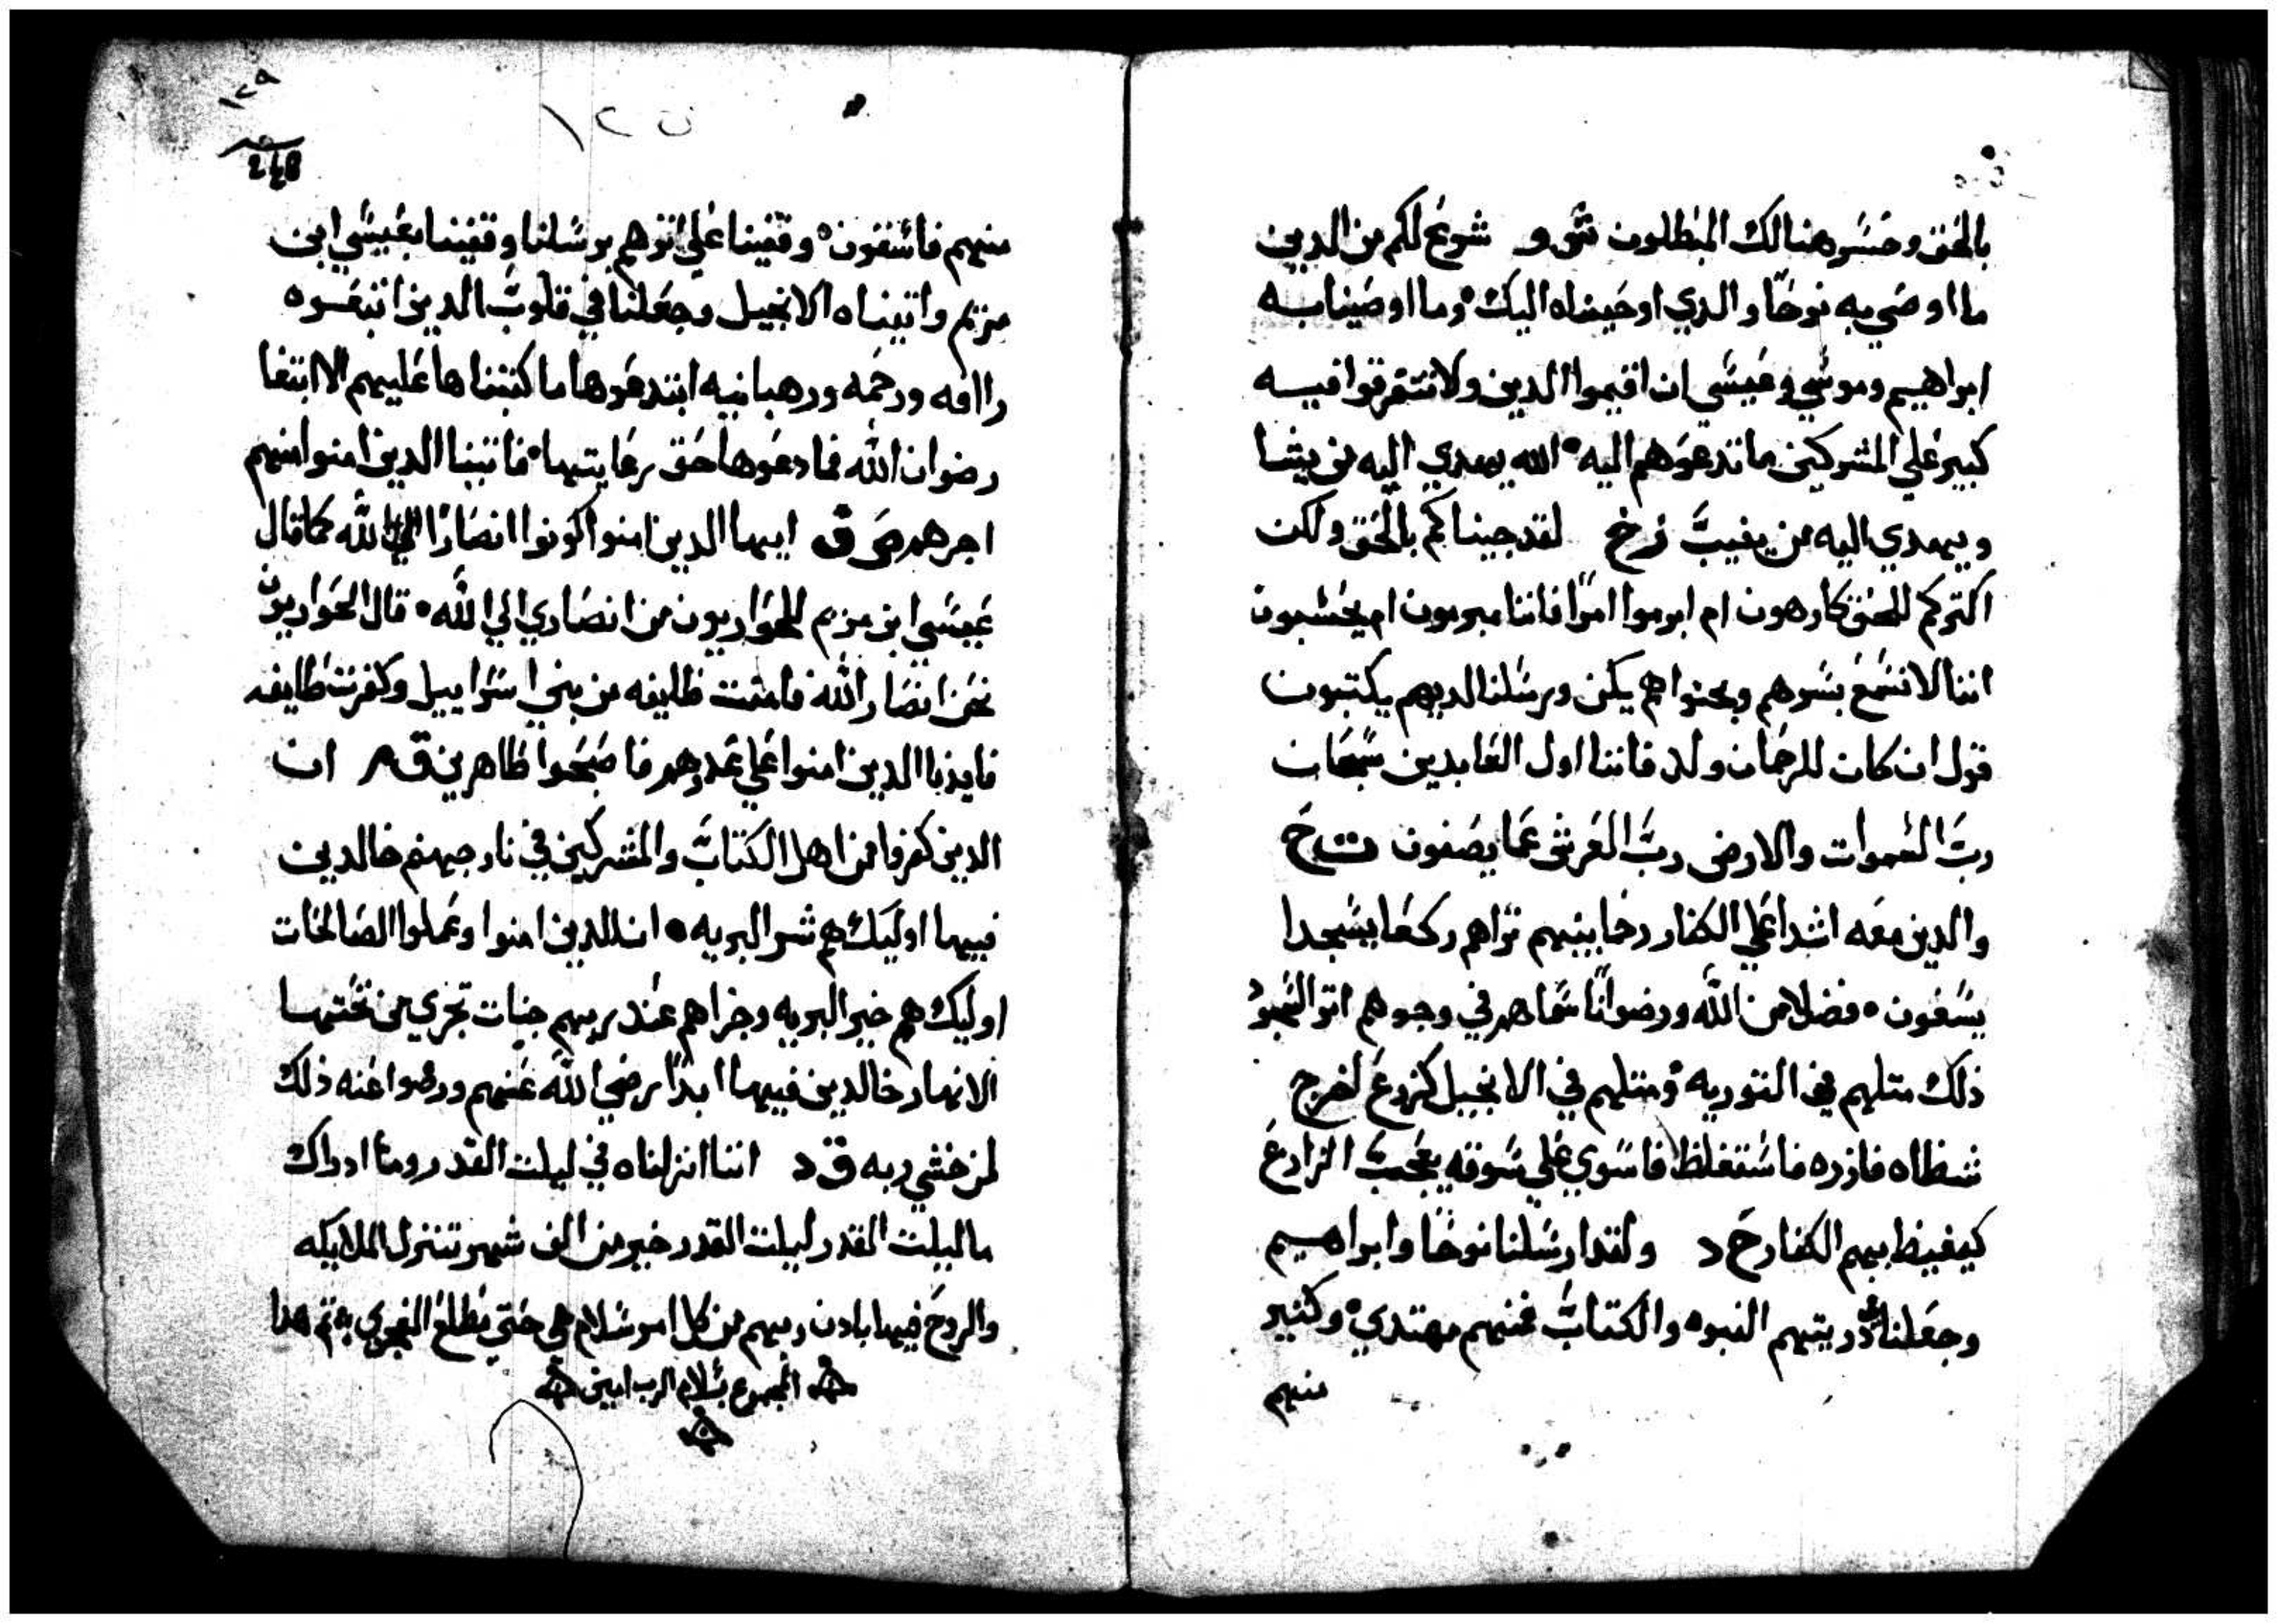 بالحق وخسر هنالك المبطلون شو و شرع لكم من الدين
ما اوصي به نوحًا والدي اوحيناه اليك وما اوصينا به
ابراهيم وموسي وعيسي ان اقيموا الدين ولا تتفرقوا فيه
كبير علي المشركين ما تدعوهم اليه الله يهدي اليه من يشا
ويهدي اليه من يغيب زخ لقد جيناكم بالحق ولكن
اكتركم للحق كارهون ام ابرموا امرًا فاننا مبرمون ام يحسبون
اننا لا نسمع بسرهم وبحنواهم يكن ورسلنا لديهم يكتبون
قول ان كان للرحمان ولد فاننا اول العابدين سبحان
رب السموات والارض رب العرش عما يصفون ت ح
والدين معه اشدا علي الكفار رحما بينهم تراهم ركعا يسجدا
يسغون فضلا من الله ورضوانًا سماهم في وجوههم اتو السجود
ذلك متلهم في التوريه ومتلهم في الانجيل كزرع اخرج
شطاه فازره فاستغلظ فاستوي علي سوقه يعجب الزارع
كيغيظ بهم الكفار ح د ولقد ارسلنا نوحًا وابراهيم
وجعلنا في دريتهم النبوه والكتاب فمنهم مهتدي وكتير
منهم
١٢٩
١٢٥
248
منهم فاسقون وقفينا علي اترهم برسلنا وقفينا بعيسي ابن
مريم واتيناه الانجيل وجعلنا في قلوب الدين اتبعوه
راافه ورحمه ورهبانيه ابتدعوها ما كتبناها عليهم الا ابتغا
رضوان الله فما رعوها حق رعايتها فاتينا الدين امنوا منهم
اجرهم ص ق ايها الدين امنوا كونوا انصارًا الي الله كما قال
عيسي ابن مريم للحواريون من انصاري الي الله قال الحواريون
نحن انصار الله فامنت طايفه من بني اسراييل وكفرت طايفه
فايدنا الدين امنوا علي عدوهم فاصبحوا ظاهرين ق م ان
الدين كفروا من اهل الكتاب والمشركين في نار جهنم خالدين
فيها اوليك هم شر البريه ان الدين امنوا وعملوا الصالحات
اوليك هم خير البريه وجزاهم عند ربهم جنات تجري من تحتها
الانهار خالدين فيها ابدًا رضي الله عنهم ورضوا عنه ذلك
لمن خشي ربه ق د اننا انزلناه في ليلت القدر وما ادراك
ما ليلت القدر ليلت القدر خير من الف شهر تنزل الملايكه
والروح فيها بادن ربهم من كل امر سلام هي حتي مطلع الفجر تم هدا
المجموع بسلام الرب امين